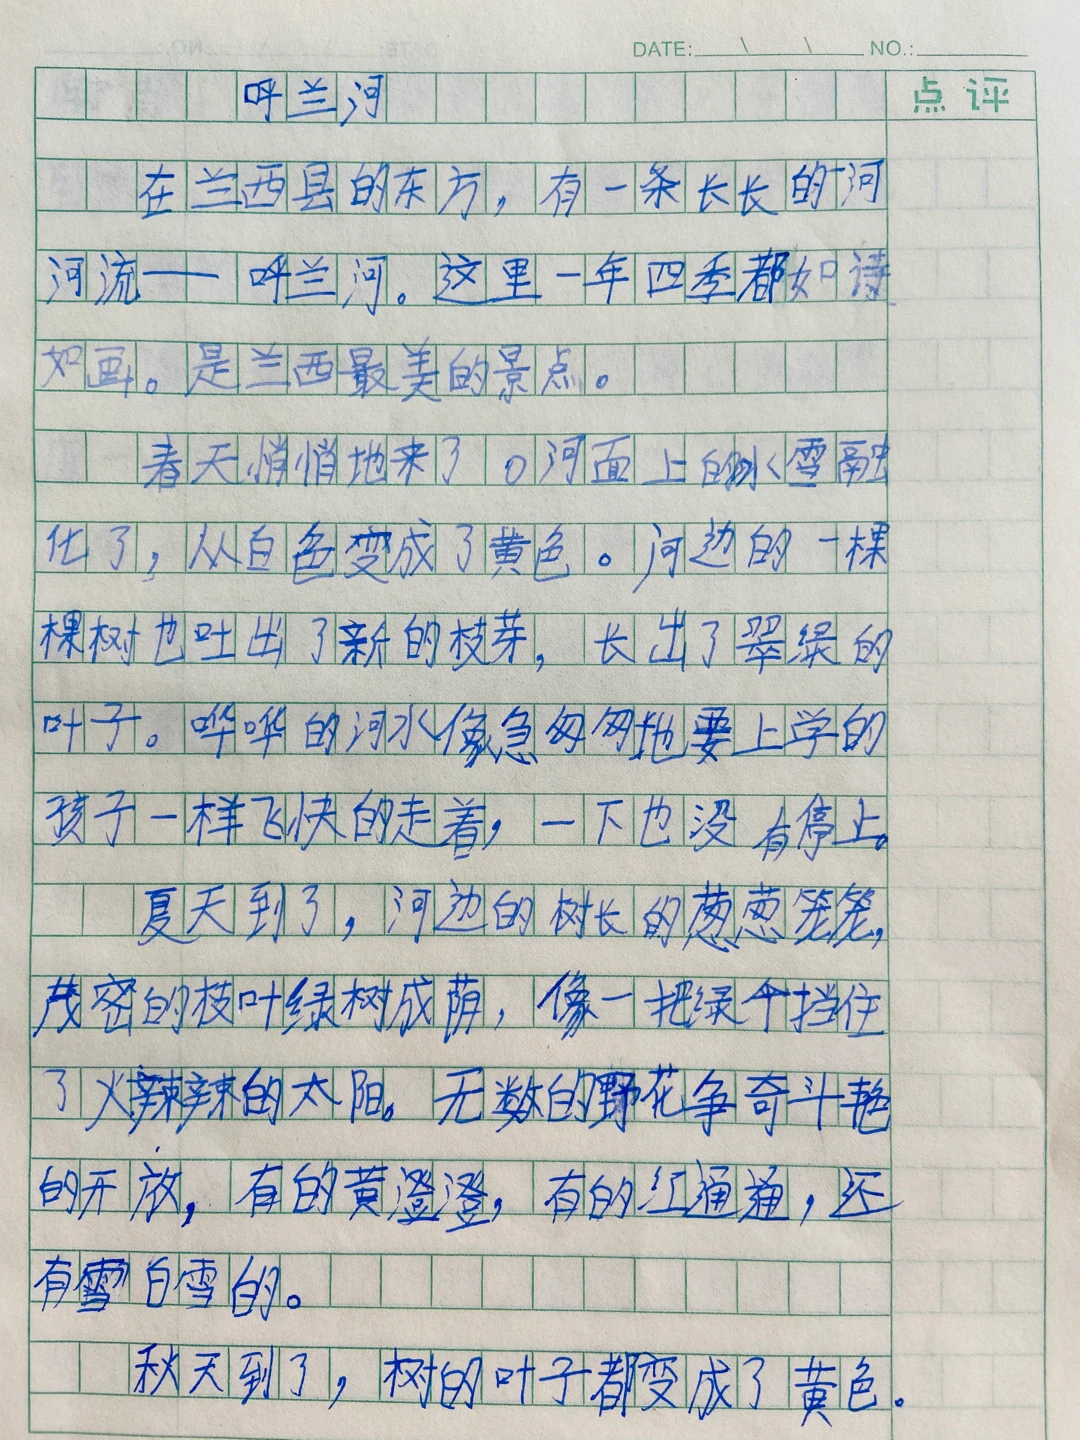 DATE: \ \ NO.:
呼兰河
点评
在兰西县的东方，有一条长长的河
河流——呼兰河。这里一年四季都如诗
如画。是兰西最美的景点。
春天悄悄地来了。河面上的冰雪融
化了，从白色变成了黄色。河边的一棵
棵树也吐出了新的枝芽，长出了翠绿的
叶子。哗哗的河水像急匆匆地要上学的
孩子一样飞快的走着，一下也没有停止。
夏天到了，河边的树长的葱葱笼笼，
茂密的枝叶绿树成荫，像一把绿伞挡住
了火辣辣的太阳。无数的野花争奇斗艳
的开放，有的黄澄澄，有的红通通，还
有雪白雪的。
秋天到了，树的叶子都变成了黄色。